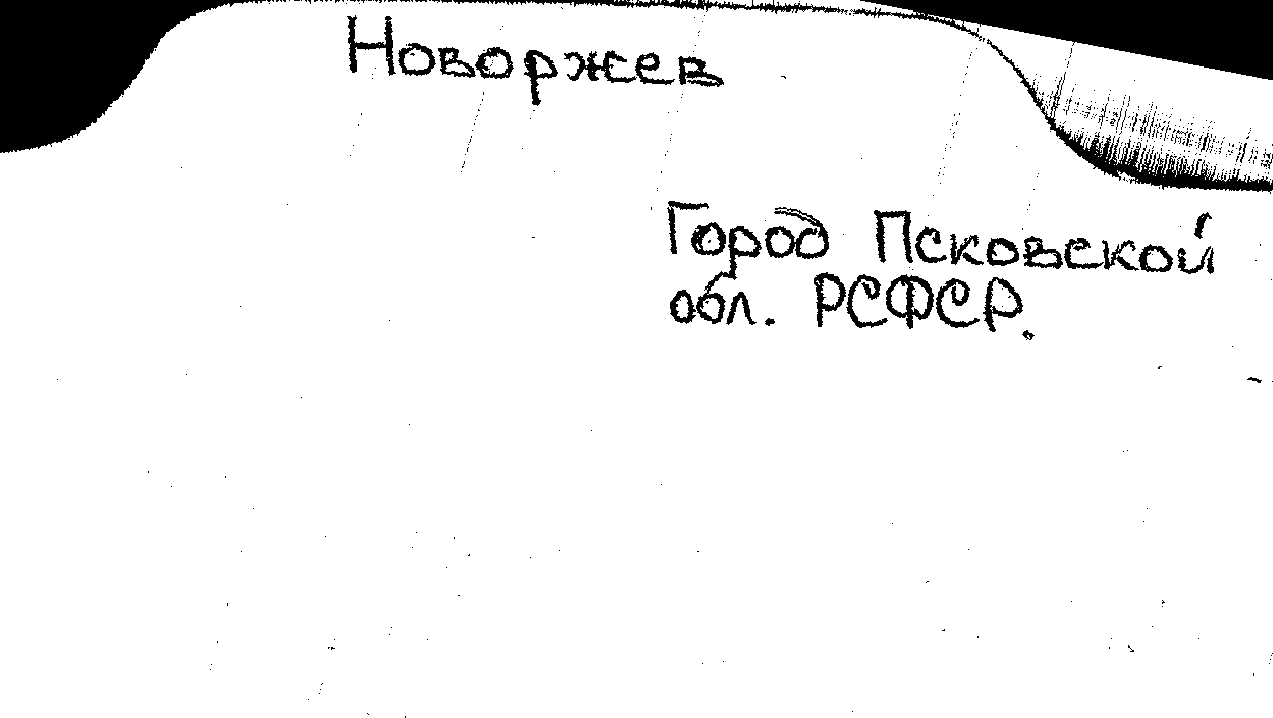 Новоржев
Город Псковской
обл. РСФСР.